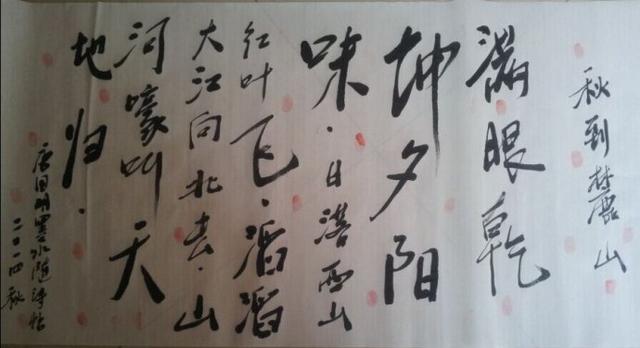 秋到麓山
满眼乾
坤夕阳
味·日落西山
红叶飞·滔滔
大江向北去·山
河嚎叫天
地归·
唐国明墨水随诗帖
二〇一四秋